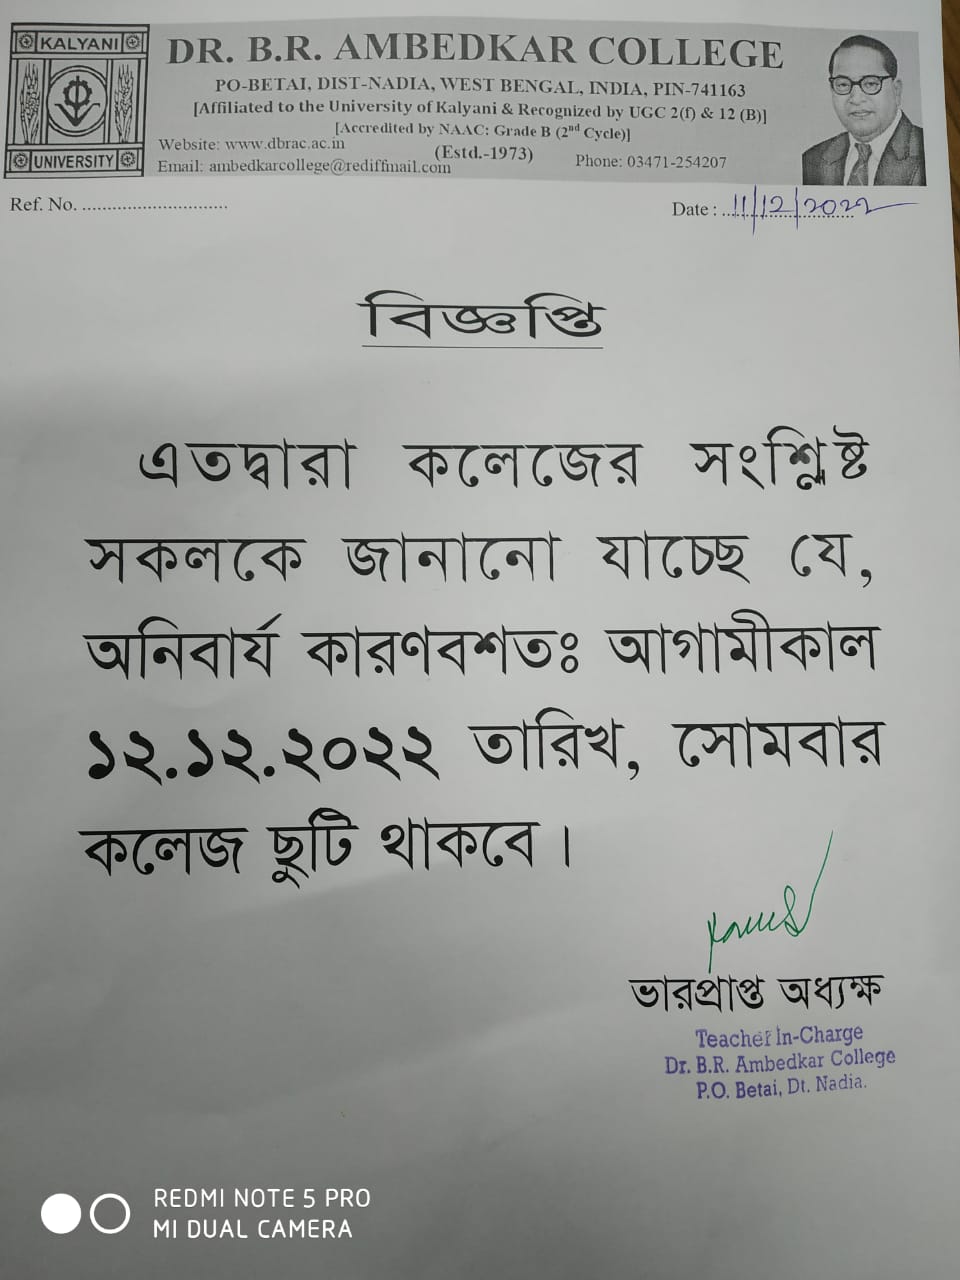 KALYANI
UNIVERSITY
DR. B.R. AMBEDKAR COLLEGE
PO-BETAI, DIST-NADIA, WEST BENGAL, INDIA, PIN-741163
[Affiliated to the University of Kalyani & Recognized by UGC 2(f) & 12 (B)]
[Accredited by NAAC: Grade B (2nd Cycle)]
Website: www.dbrac.ac.in
(Estd.-1973)
Email: ambedkarcollege@rediffmail.com
Phone: 03471-254207
Ref. No. ............................
Date : 11/12/2022
বিজ্ঞপ্তি
এতদ্বারা কলেজের সংশ্লিষ্ট
সকলকে জানানো যাচ্ছে যে,
অনিবার্য কারণবশতঃ আগামীকাল
১২.১২.২০২২ তারিখ, সোমবার
কলেজ ছুটি থাকবে।
ভারপ্রাপ্ত অধ্যক্ষ
Teacher In-Charge
Dr. B.R. Ambedkar College
P.O. Betai, Dt. Nadia.
REDMI NOTE 5 PRO
MI DUAL CAMERA